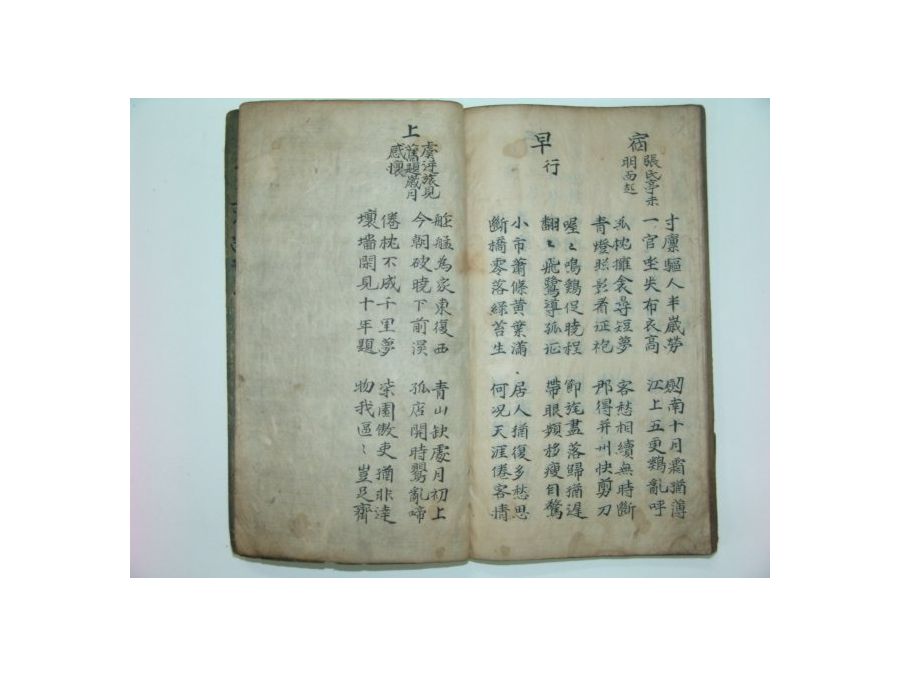 宿
張氏亭未
明而起
寸廩驅人半歲勞
一官坐失布衣高
劒南十月霜猶薄
江上五更鷄亂呼
孤枕擁衾尋短夢
青燈照影着征袍
客愁相續無時斷
那得幷州快剪刀
早行
喔〻鳴鷄促曉程
翻〻飛鷺導孤征
節旄盡落歸猶遲
帶眼頻移瘦自驚
小市蕭條黃葉滿
斷橋零落綠苔生
居人猶復多愁思
何况天涯倦客情
上
虞逆旅見
舊題歲月
感懷
舴艋為家東復西
今朝破曉下前溪
青山缺處月初上
孤店開時鶯亂啼
倦枕不成千里夢
壞墻閑見十年題
柒園傲吏猶非達
物我區〻豈足齊